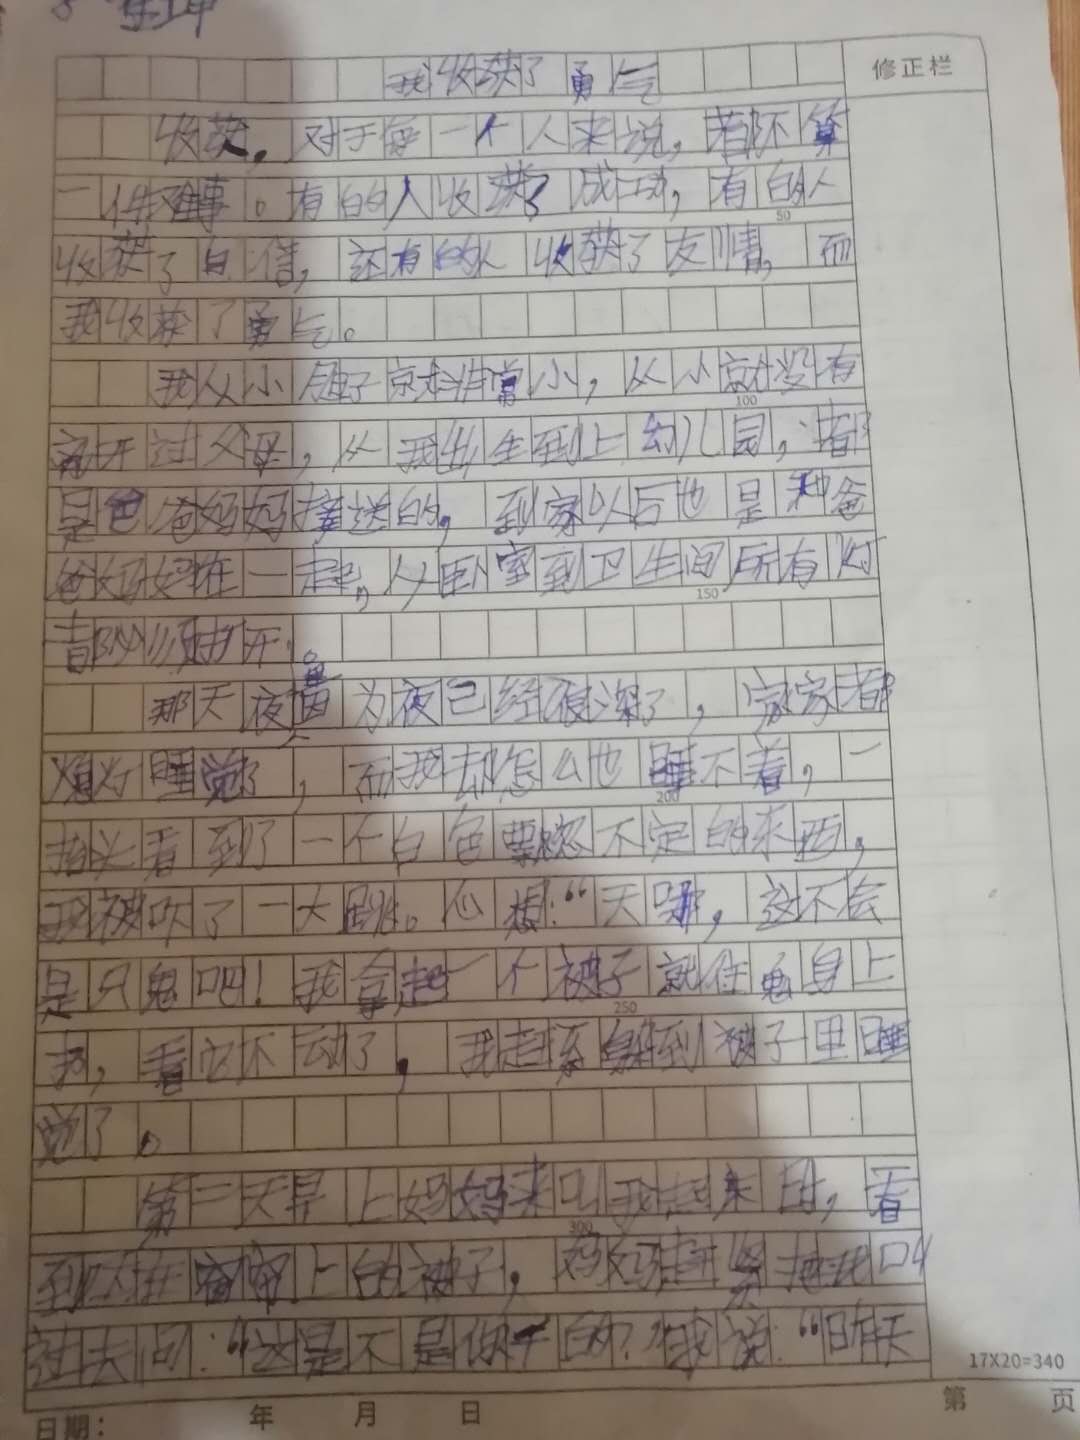 我收获了勇气
修正栏
收获，对于每一个人来说，都不算
一件难事。有的人收获了成功，有的人
50
收获了自信，还有的人收获了友情，而
我收获了勇气。
我从小胆子就非常小，从小就没有
100
离开过父母，从我出生到上幼儿园，都
是爸爸妈妈接送的，到家以后也是和爸
爸妈妈在一起，从卧室到卫生间所有灯
150
都必须打开。
那天夜 为夜已经很深了，家家都
熄灯睡觉了，而我却怎么也睡不着，一
200
抬头看到了一个白色飘忽不定的东西，
我被吓了一大跳。心想：“天哪，这不会
是只鬼吧！我拿起一个被子就往鬼身上
250
扔，看它不动了，我赶紧躲到被子里睡
觉了。
第二天早上妈妈来叫我起床时，看
300
到 上的被子，妈妈赶紧把我叫
过去问：“这是不是你干的？”我说：“昨天
17X20=340
日期： 年 月 日
第 页